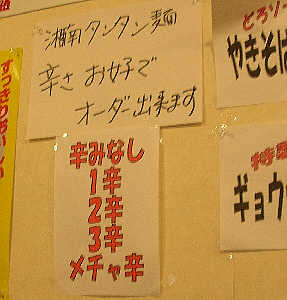 湘南タンタン麺
辛さ お好で
オーダー出来ます
辛みなし
1辛
2辛
3辛
メチャ辛
とろソー
やきそば
ギョウ